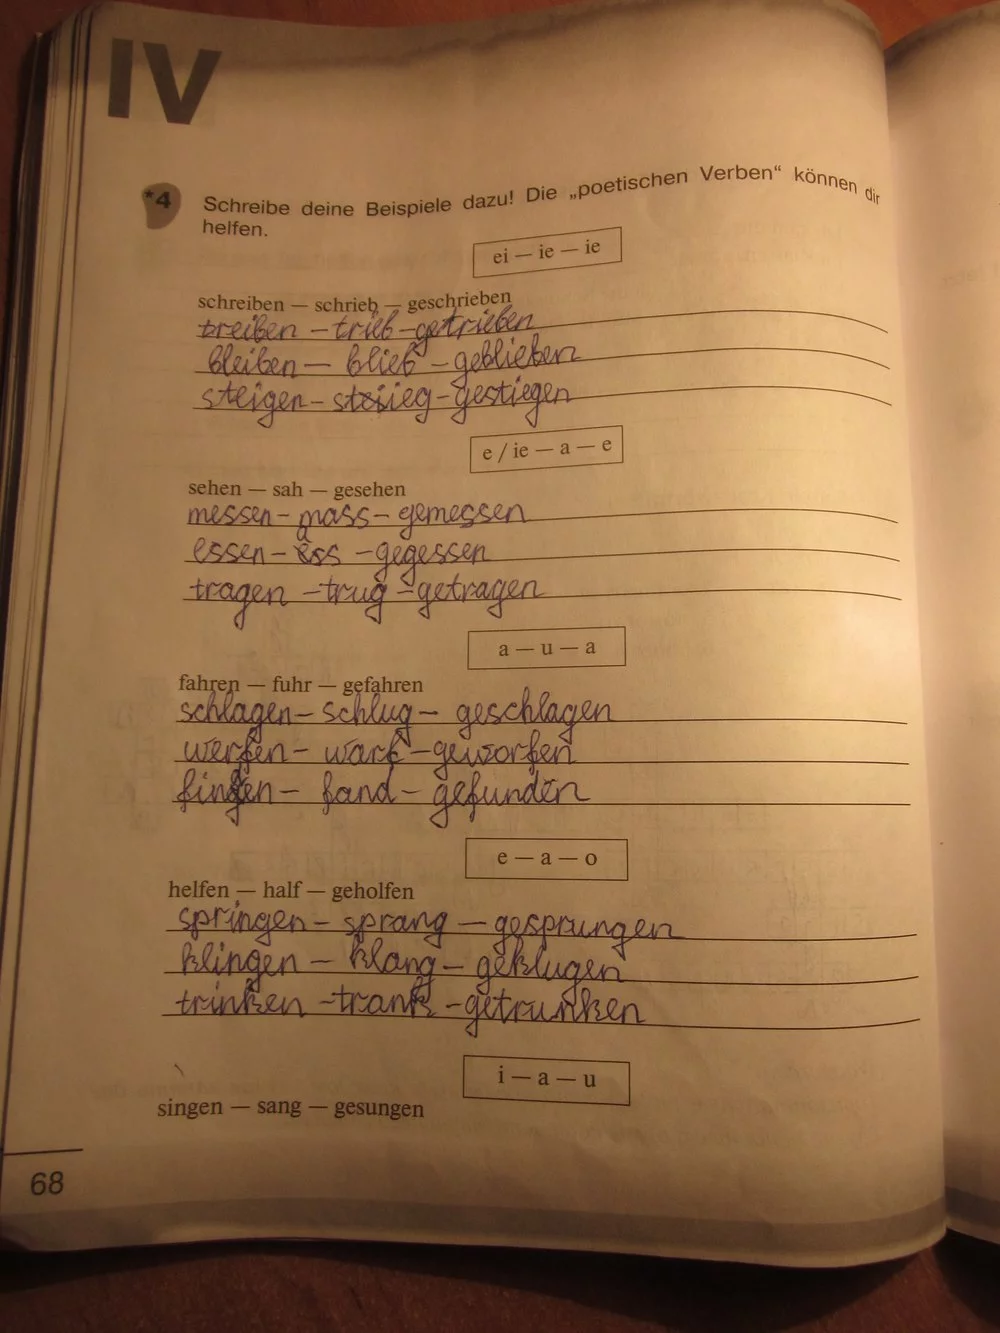 IV
*4 Schreibe deine Beispiele dazu! Die „poetischen Verben“ können dir
helfen.
ei — ie — ie
schreiben — schrieb — geschrieben
treiben – trieb – getrieben
bleiben – blieb – geblieben
steigen – stieg – gestiegen
e / ie — a — e
sehen — sah — gesehen
messen – mass – gemessen
essen – ass – gegessen
tragen – trug – getragen
a — u — a
fahren — fuhr — gefahren
schlagen – schlug – geschlagen
werfen – warf – geworfen
finden – fand – gefunden
e — a — o
helfen — half — geholfen
springen – sprang – gesprungen
klingen – klang – geklugen
trinken – trank – getrunken
i — a — u
singen — sang — gesungen
68